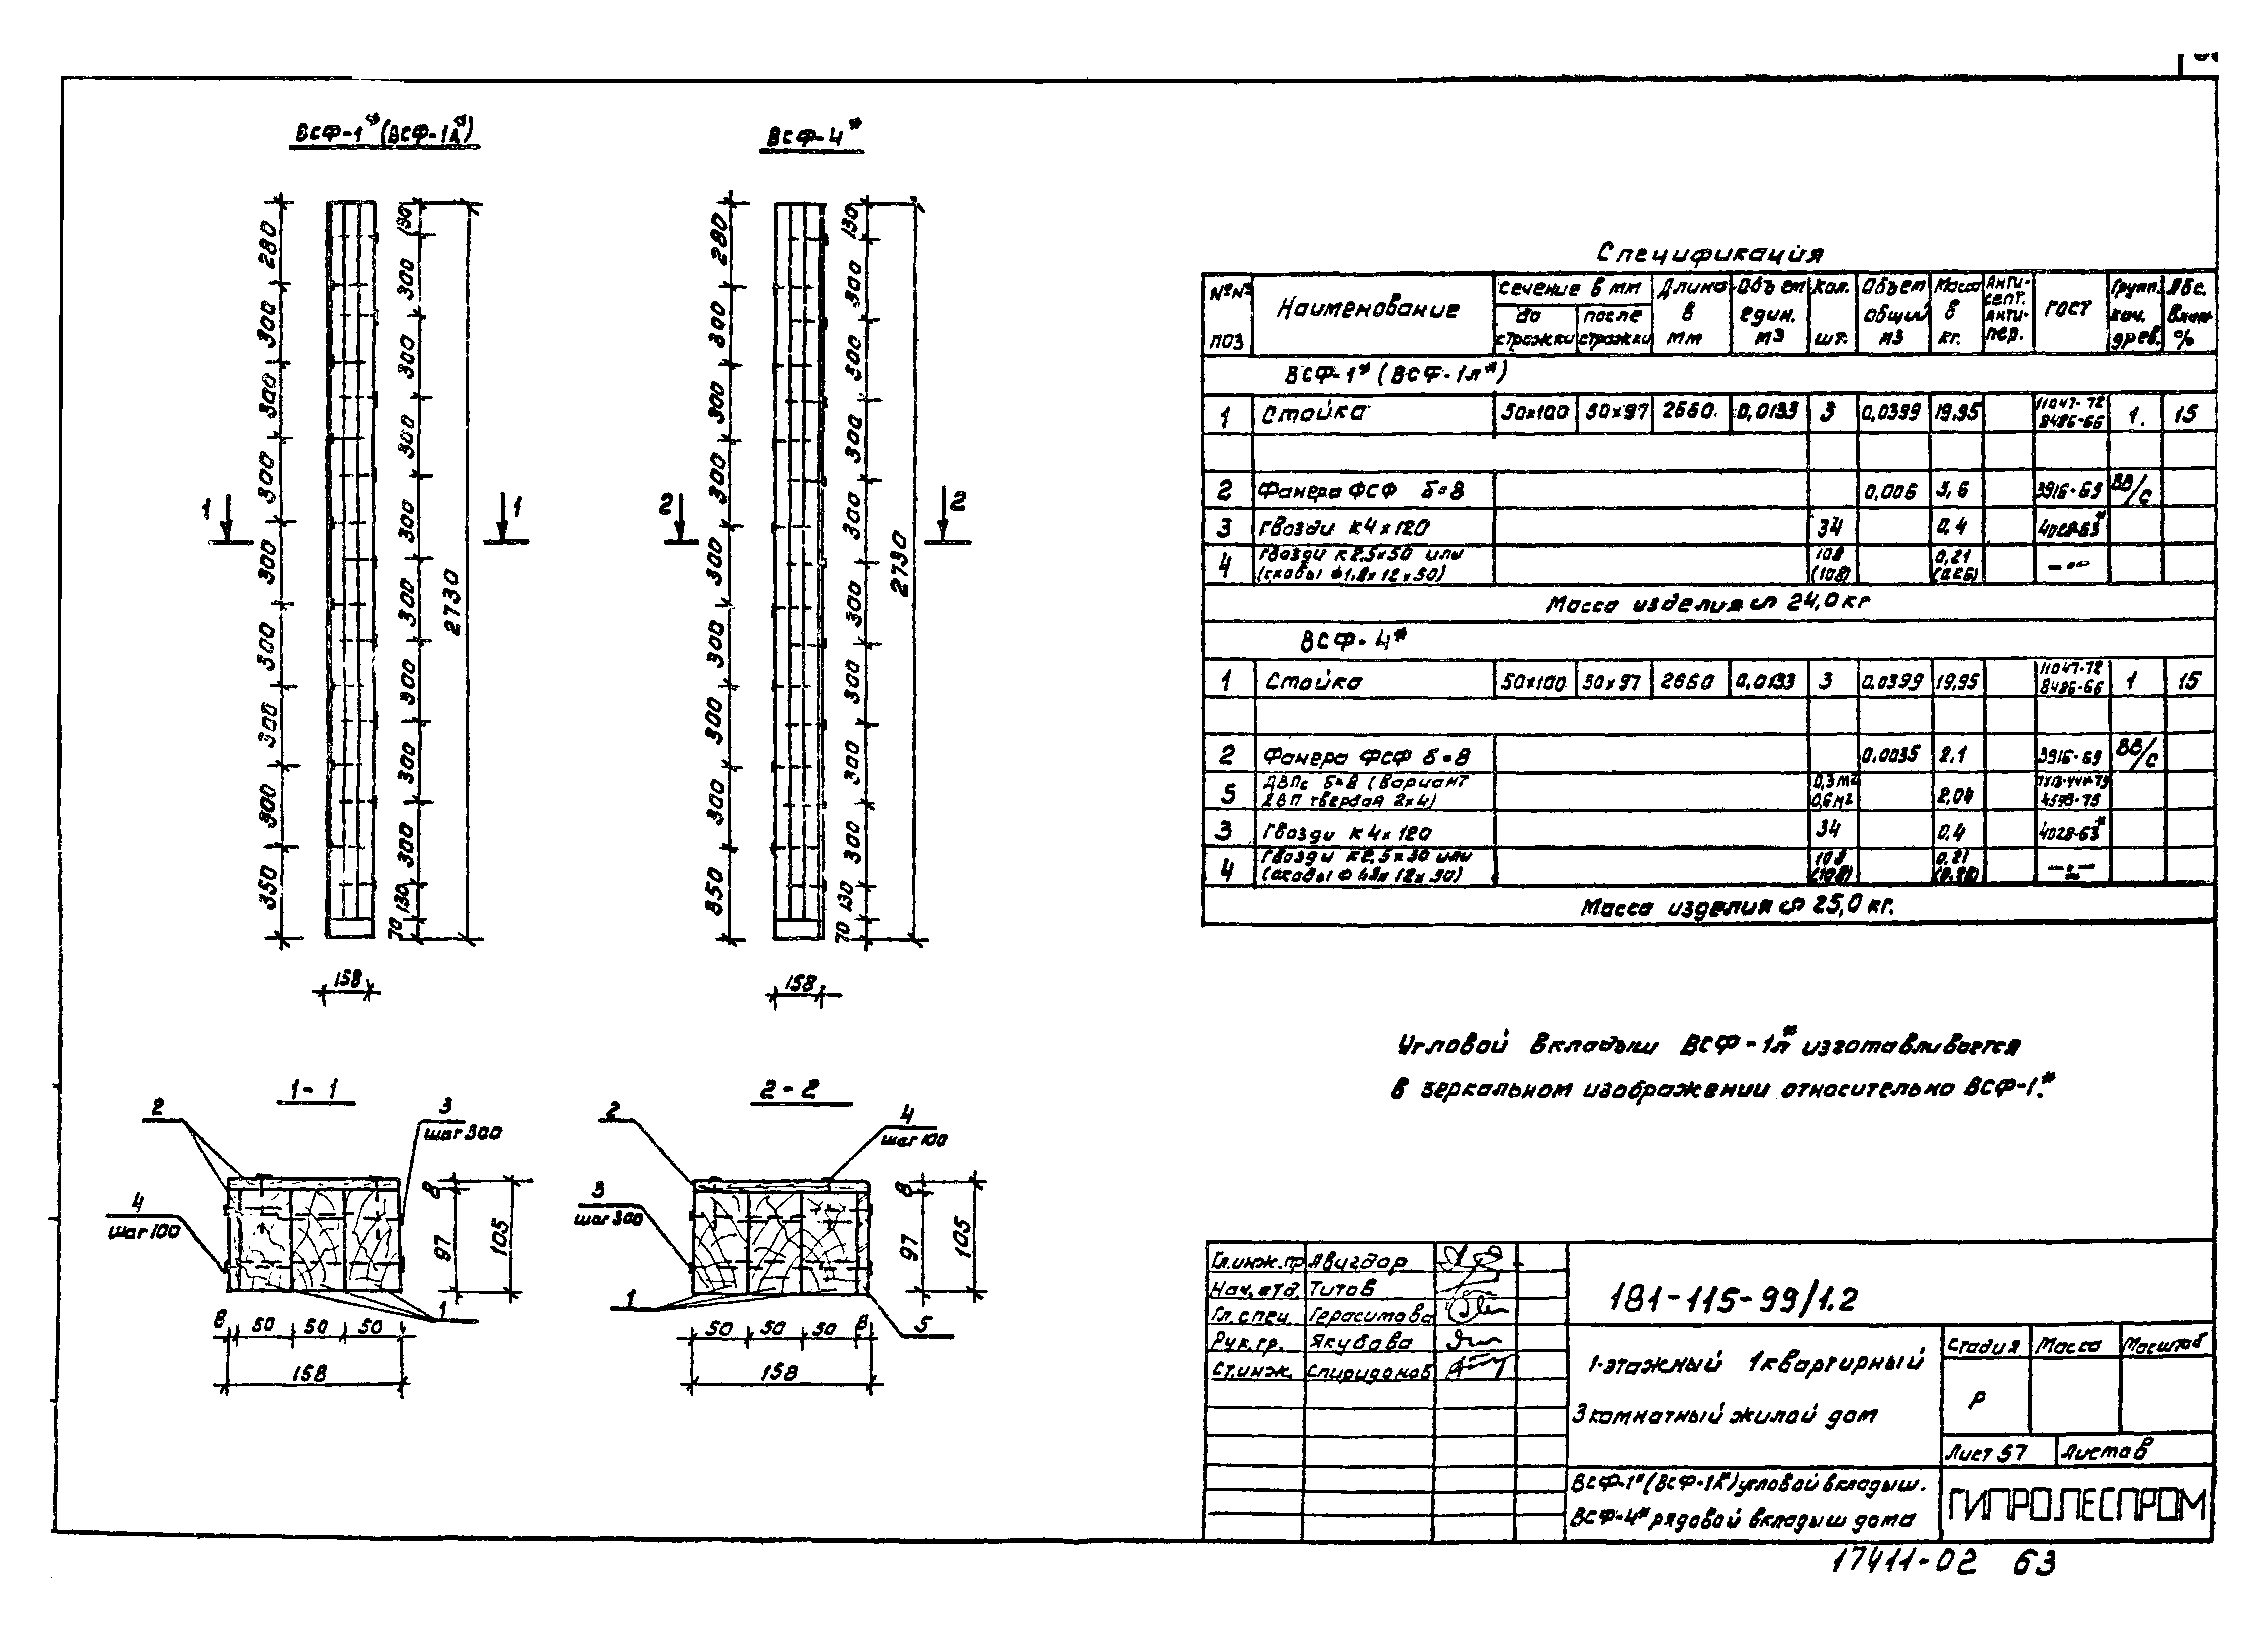 ВСФ-1* (ВСФ-1л*)
ВСФ-4*
280
300
300
300
300
300
300
300
350
130
300
300
300
300
300
300
300
300
130
70
2730
158
1
1
280
300
300
300
300
300
300
300
350
130
300
300
300
300
300
300
300
300
130
70
2730
158
2
2
1-1
2
3
шаг 300
4
шаг 100
1
8
97
105
8 50 50 50
158
2-2
2
4
шаг 100
3
шаг 300
1
5
8
97
105
50 50 50 8
158
Спецификация
№№ поз
Наименование
сечение в мм
до стружки
после стружки
Длина в мм
Объем един. м3
Кол. шт.
Объем общий м3
Масса в кг.
Анти-септ. анти-пер.
ГОСТ
Групп. кач. древ.
Абс. влаж %
ВСФ-1* (ВСФ-1л*)
1 Стойка 50х100 50х97 2660 0,0133 3 0,0399 19,95 11047-72 8486-66 1. 15
2 Фанера ФСФ δ=8 0,006 3,6 3916-69 ВВ/С
3 Гвозди К4х120 34 0,4 4028-63*
4 Гвозди К2,5х50 или (скобы Ф1,8х12х50) 108 (108) 0,21 —"—
Масса изделия ∽ 24,0 кг
ВСФ-4*
1 Стойка 50х100 50х97 2660 0,0133 3 0,0399 19,95 11047-72 8486-66 1 15
2 Фанера ФСФ δ=8 0,0035 2,1 3916-69 ВВ/С
5 ДВПс δ=8 (Вариант ДВП твердая 2х4) 0,3м2 0,6м2 2,04 4598-79
3 Гвозди К4х120 34 0,4 4028-63*
4 Гвозди К2,5х50 или 108 (108) 0,21 —"—
Масса изделия ∽ 25,0 кг.
Угловой вкладыш ВСФ-1л* изготавливается
в зеркальном изображении относительно ВСФ-1.*
Гл.инж.пр Авигдор
Нач.отд. Титов
Гл.спец. Герасимова
Рук.гр. Якубова
Ст.инж. Спиридонов
181-115-99/1.2
1-этажный 1квартирный
3 комнатный жилой дом
Стадия Масса Масштаб
Р
Лист 57 Листов
ВСФ-1*(ВСФ-1л*) угловой вкладыш.
ВСФ-4* рядовой вкладыш дома
ГИПРОЛЕСПРОМ
17411-02 63